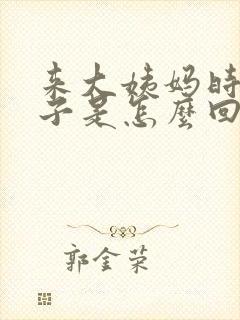 来大姨妈时
子是怎麼回
郭金荣